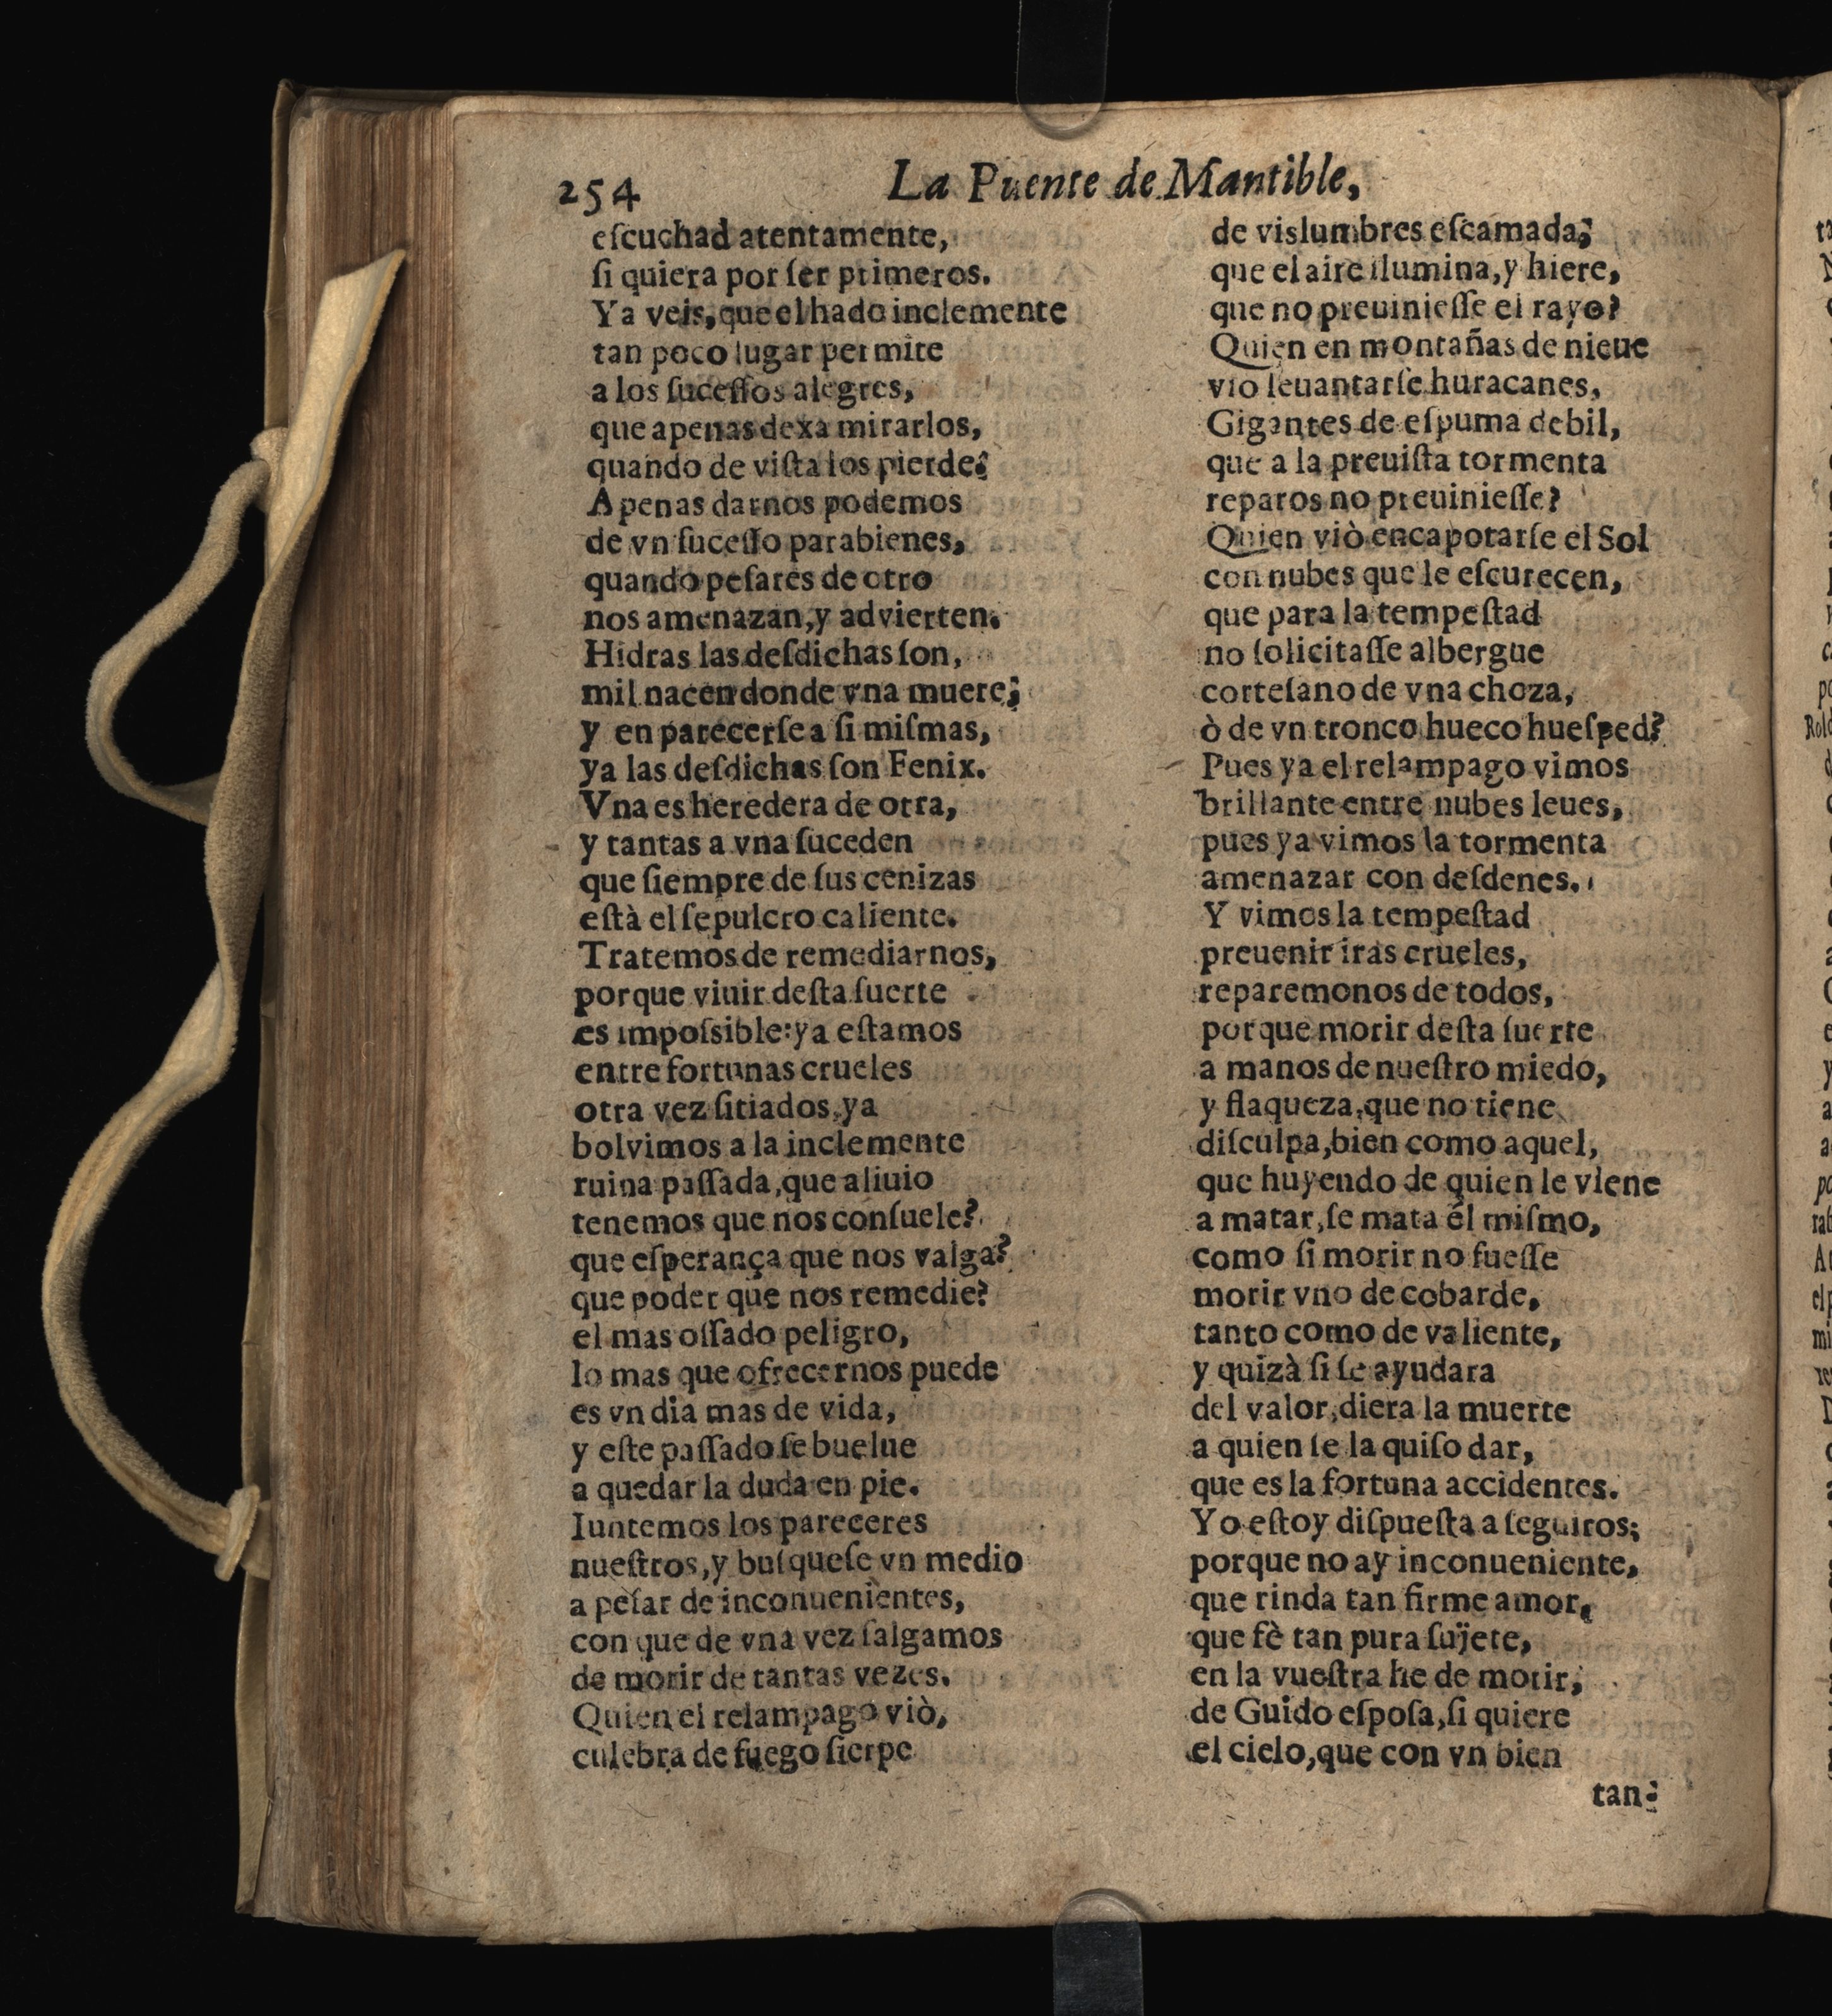 254
La Puente de Mantible,
eſcuchad atentamente,
ſi quiera por ſer primeros.
Ya veis, que el hado inclemente
tan poco lugar permite
a los ſuceſſos alegres,
que apenas dexa mirarlos,
quando de viſta los pierde?
Apenas darnos podemos
de vn ſuceſſo parabienes,
quando peſares de otro
nos amenazan, y advierten.
Hidras las deſdichas ſon,
mil nacen donde vna muere;
y en parecerſe a ſi miſmas,
ya las deſdichas ſon Fenix.
Vna es heredera de otra,
y tantas a vna ſuceden
que ſiempre de ſus cenizas
eſtà el ſepulcro caliente.
Tratemos de remediarnos,
porque viuir deſta ſuerte
es impoſsible: ya eſtamos
entre fortunas crueles
otra vez ſitiados, ya
bolvimos a la inclemente
ruina paſſada, que aliuio
tenemos que nos conſuele?
que eſperança que nos valga?
que poder que nos remedie?
el mas oſſado peligro,
lo mas que ofrecernos puede
es vn dia mas de vida,
y eſte paſſado ſe buelue
a quedar la duda en pie.
Iuntemos los pareceres
nueſtros, y buſqueſe vn medio
a peſar de inconuenientes,
con que de vna vez ſalgamos
de morir de tantas vezes.
Quien el relampago viò,
culebra de fuego ſierpe
de vislumbres eſcamada;
que el aire ilumina, y hiere,
que no preuinieſſe el rayo?
Quien en montañas de nieue
vio leuantarſe huracanes,
Gigantes de eſpuma debil,
que a la preuiſta tormenta
reparos no preuinieſſe?
Quien viò encapotarſe el Sol
con nubes que le eſcurecen,
que para la tempeſtad
no ſolicitaſſe albergue
corteſano de vna choza,
ò de vn tronco hueco hueſped?
Pues ya el relampago vimos
brillante entre nubes leues,
pues ya vimos la tormenta
amenazar con deſdenes.
Y vimos la tempeſtad
preuenir iras crueles,
reparemonos de todos,
porque morir deſta ſuerte
a manos de nueſtro miedo,
y flaqueza, que no tiene
diſculpa, bien como aquel,
que huyendo de quien le viene
a matar, ſe mata él miſmo,
como ſi morir no fueſſe
morir vno de cobarde,
tanto como de valiente,
y quizà ſi ſe ayudara
del valor, diera la muerte
a quien ſe la quiſo dar,
que es la fortuna accidentes.
Yo eſtoy diſpueſta a ſeguiros;
porque no ay inconueniente,
que rinda tan firme amor,
que fè tan pura ſujete,
en la vueſtra he de morir;
de Guido eſpoſa, ſi quiere
el cielo, que con vn bien
tan-